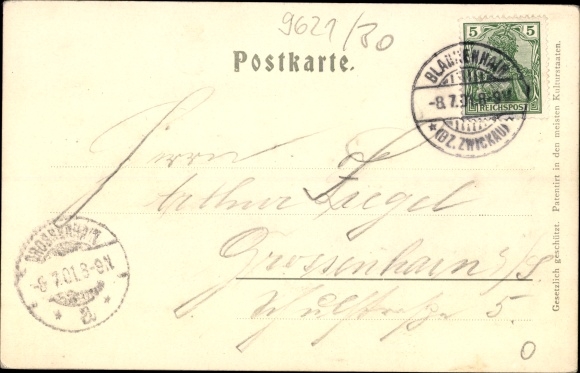 9621/30
Postkarte.
5 5
REICHSPOST
BLANKENHAIN
-8.7.01.8-9V.
*(BZ.ZWICKAU)*
Herrn
Arthur Ziegel
Grossenhain i/S
Schulstraße 5.
GROSSENHAIN
-8.7.01.8-9V.
* a *
0
Gesetzlich geschützt. Patentirt in den meisten Kulturstaaten.